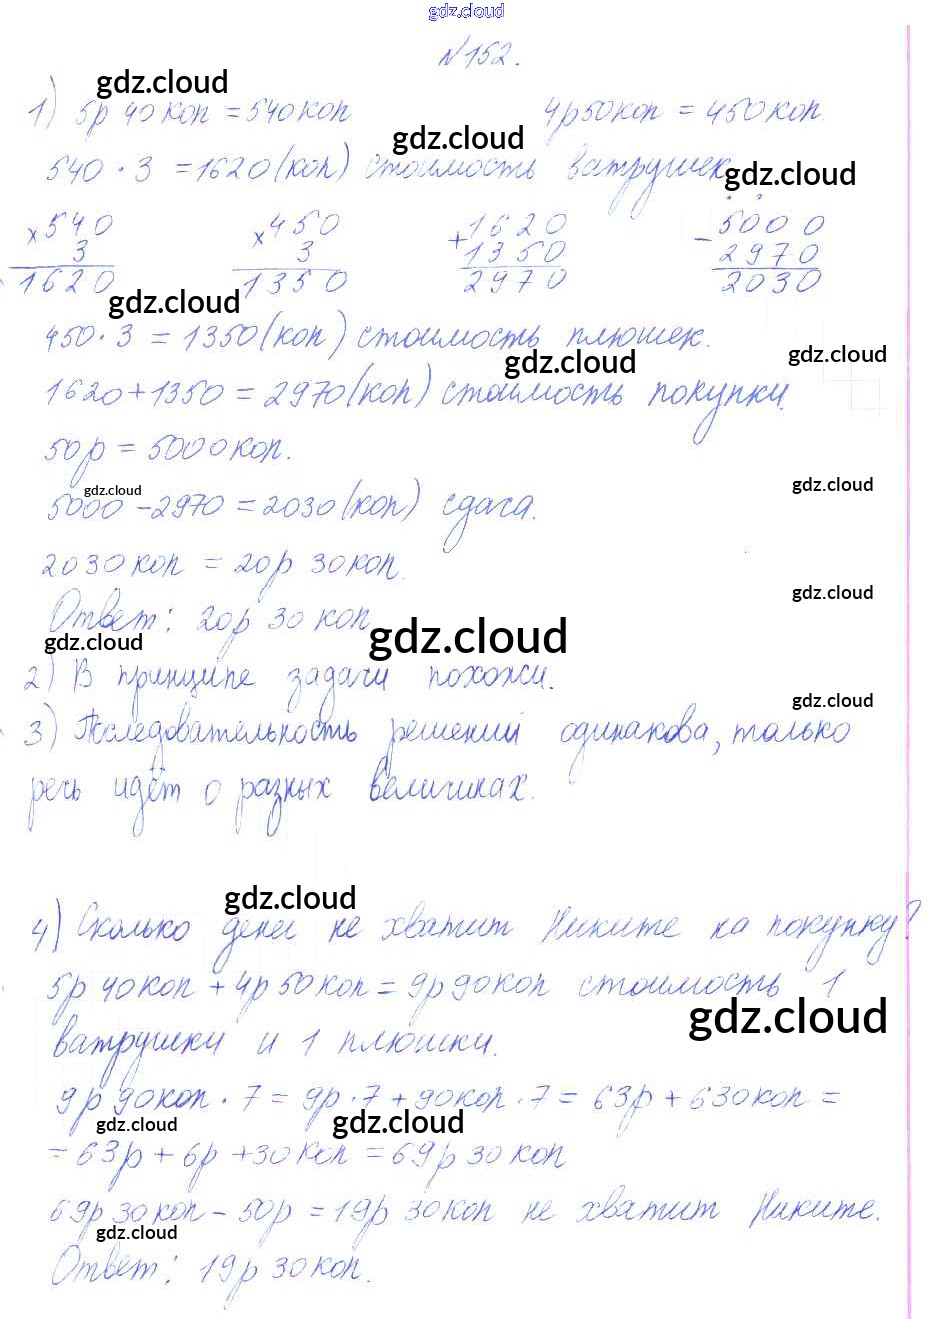 gdz.cloud
№152.
gdz.cloud
1) 5р 40 коп = 540 коп 4р 50 коп = 450 коп.
gdz.cloud
540 · 3 = 1620 (коп) стоимость ватрушек.
gdz.cloud
× 540 × 450 + 1620 - 5000
3 3 1350 2970
1620 1350 2970 2030
gdz.cloud
450 · 3 = 1350 (коп) стоимость плюшек.
gdz.cloud gdz.cloud
1620 + 1350 = 2970 (коп) стоимость покупки.
50р = 5000 коп.
gdz.cloud gdz.cloud
5000 - 2970 = 2030 (коп) сдача.
2030 коп = 20р 30 коп.
gdz.cloud
Ответ: 20р 30 коп
gdz.cloud gdz.cloud
2) В принципе задачи похожи.
gdz.cloud
3) Последовательность решений одинакова, только
речь идёт о разных величинах.
gdz.cloud
4) Сколько денег не хватит Никите на покупку?
5р 40 коп + 4р 50 коп = 9р 90 коп стоимость 1
gdz.cloud
ватрушки и 1 плюшки.
9р 90 коп · 7 = 9р · 7 + 90 коп · 7 = 63р + 630 коп =
gdz.cloud gdz.cloud
= 63р + 6р + 30 коп = 69р 30 коп
69р 30 коп - 50р = 19р 30 коп не хватит Никите.
gdz.cloud
Ответ: 19р 30 коп.